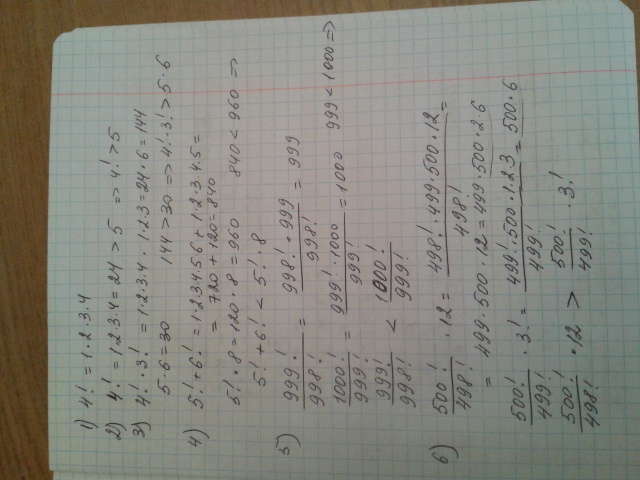 1) 4! = 1·2·3·4
2) 4! = 1·2·3·4 = 24 > 5 => 4! > 5
3) 4!·3! = 1·2·3·4·1·2·3 = 24·6 = 144
5·6 = 30 144 > 30 => 4!·3! > 5·6
4) 5! + 6! = 1·2·3·4·5·6 + 1·2·3·4·5 =
= 720 + 120 = 840
5!·8 = 120·8 = 960 840 < 960 =>
5! + 6! < 5!·8
5) 999!/998! = 998!·999/998! = 999
1000!/999! = 999!·1000/999! = 1000 999 < 1000 =>
999!/998! < 1000!/999!
6) 500!/498! · 12 = 498!·499·500·12/498! =
= 499·500·12 = 499·500·2·6
500!/499! · 3! = 499!·500·1·2·3/499! = 500·6
500!/498! · 12 > 500!/499! · 3!